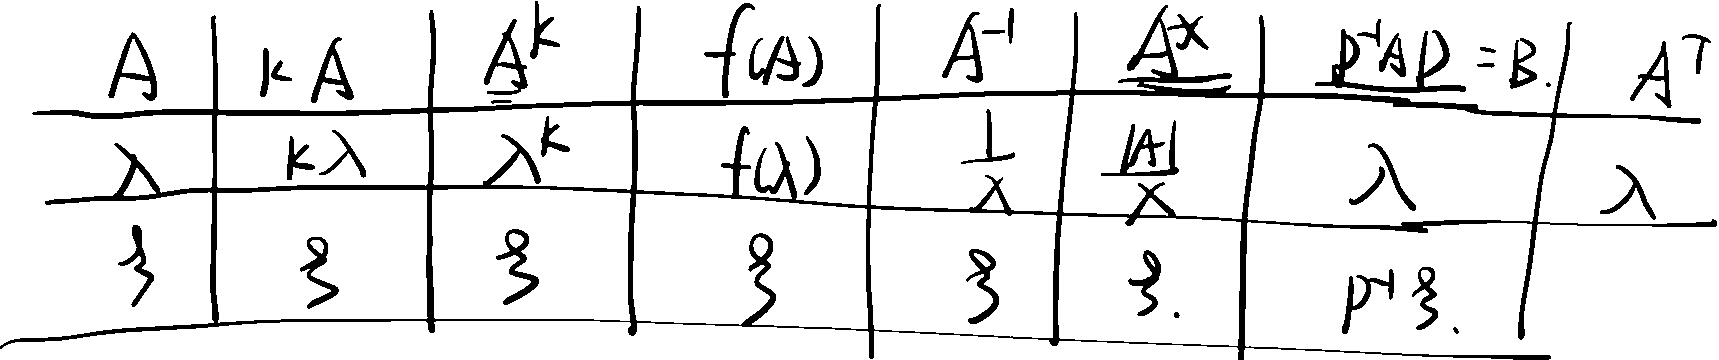 A kA A^k f(A) A^{-1} A^* P^{-1}AP = B. A^T
λ kλ λ^k f(λ) 1/λ |A|/λ λ λ
ξ ξ ξ ξ ξ ξ. P^{-1}ξ.